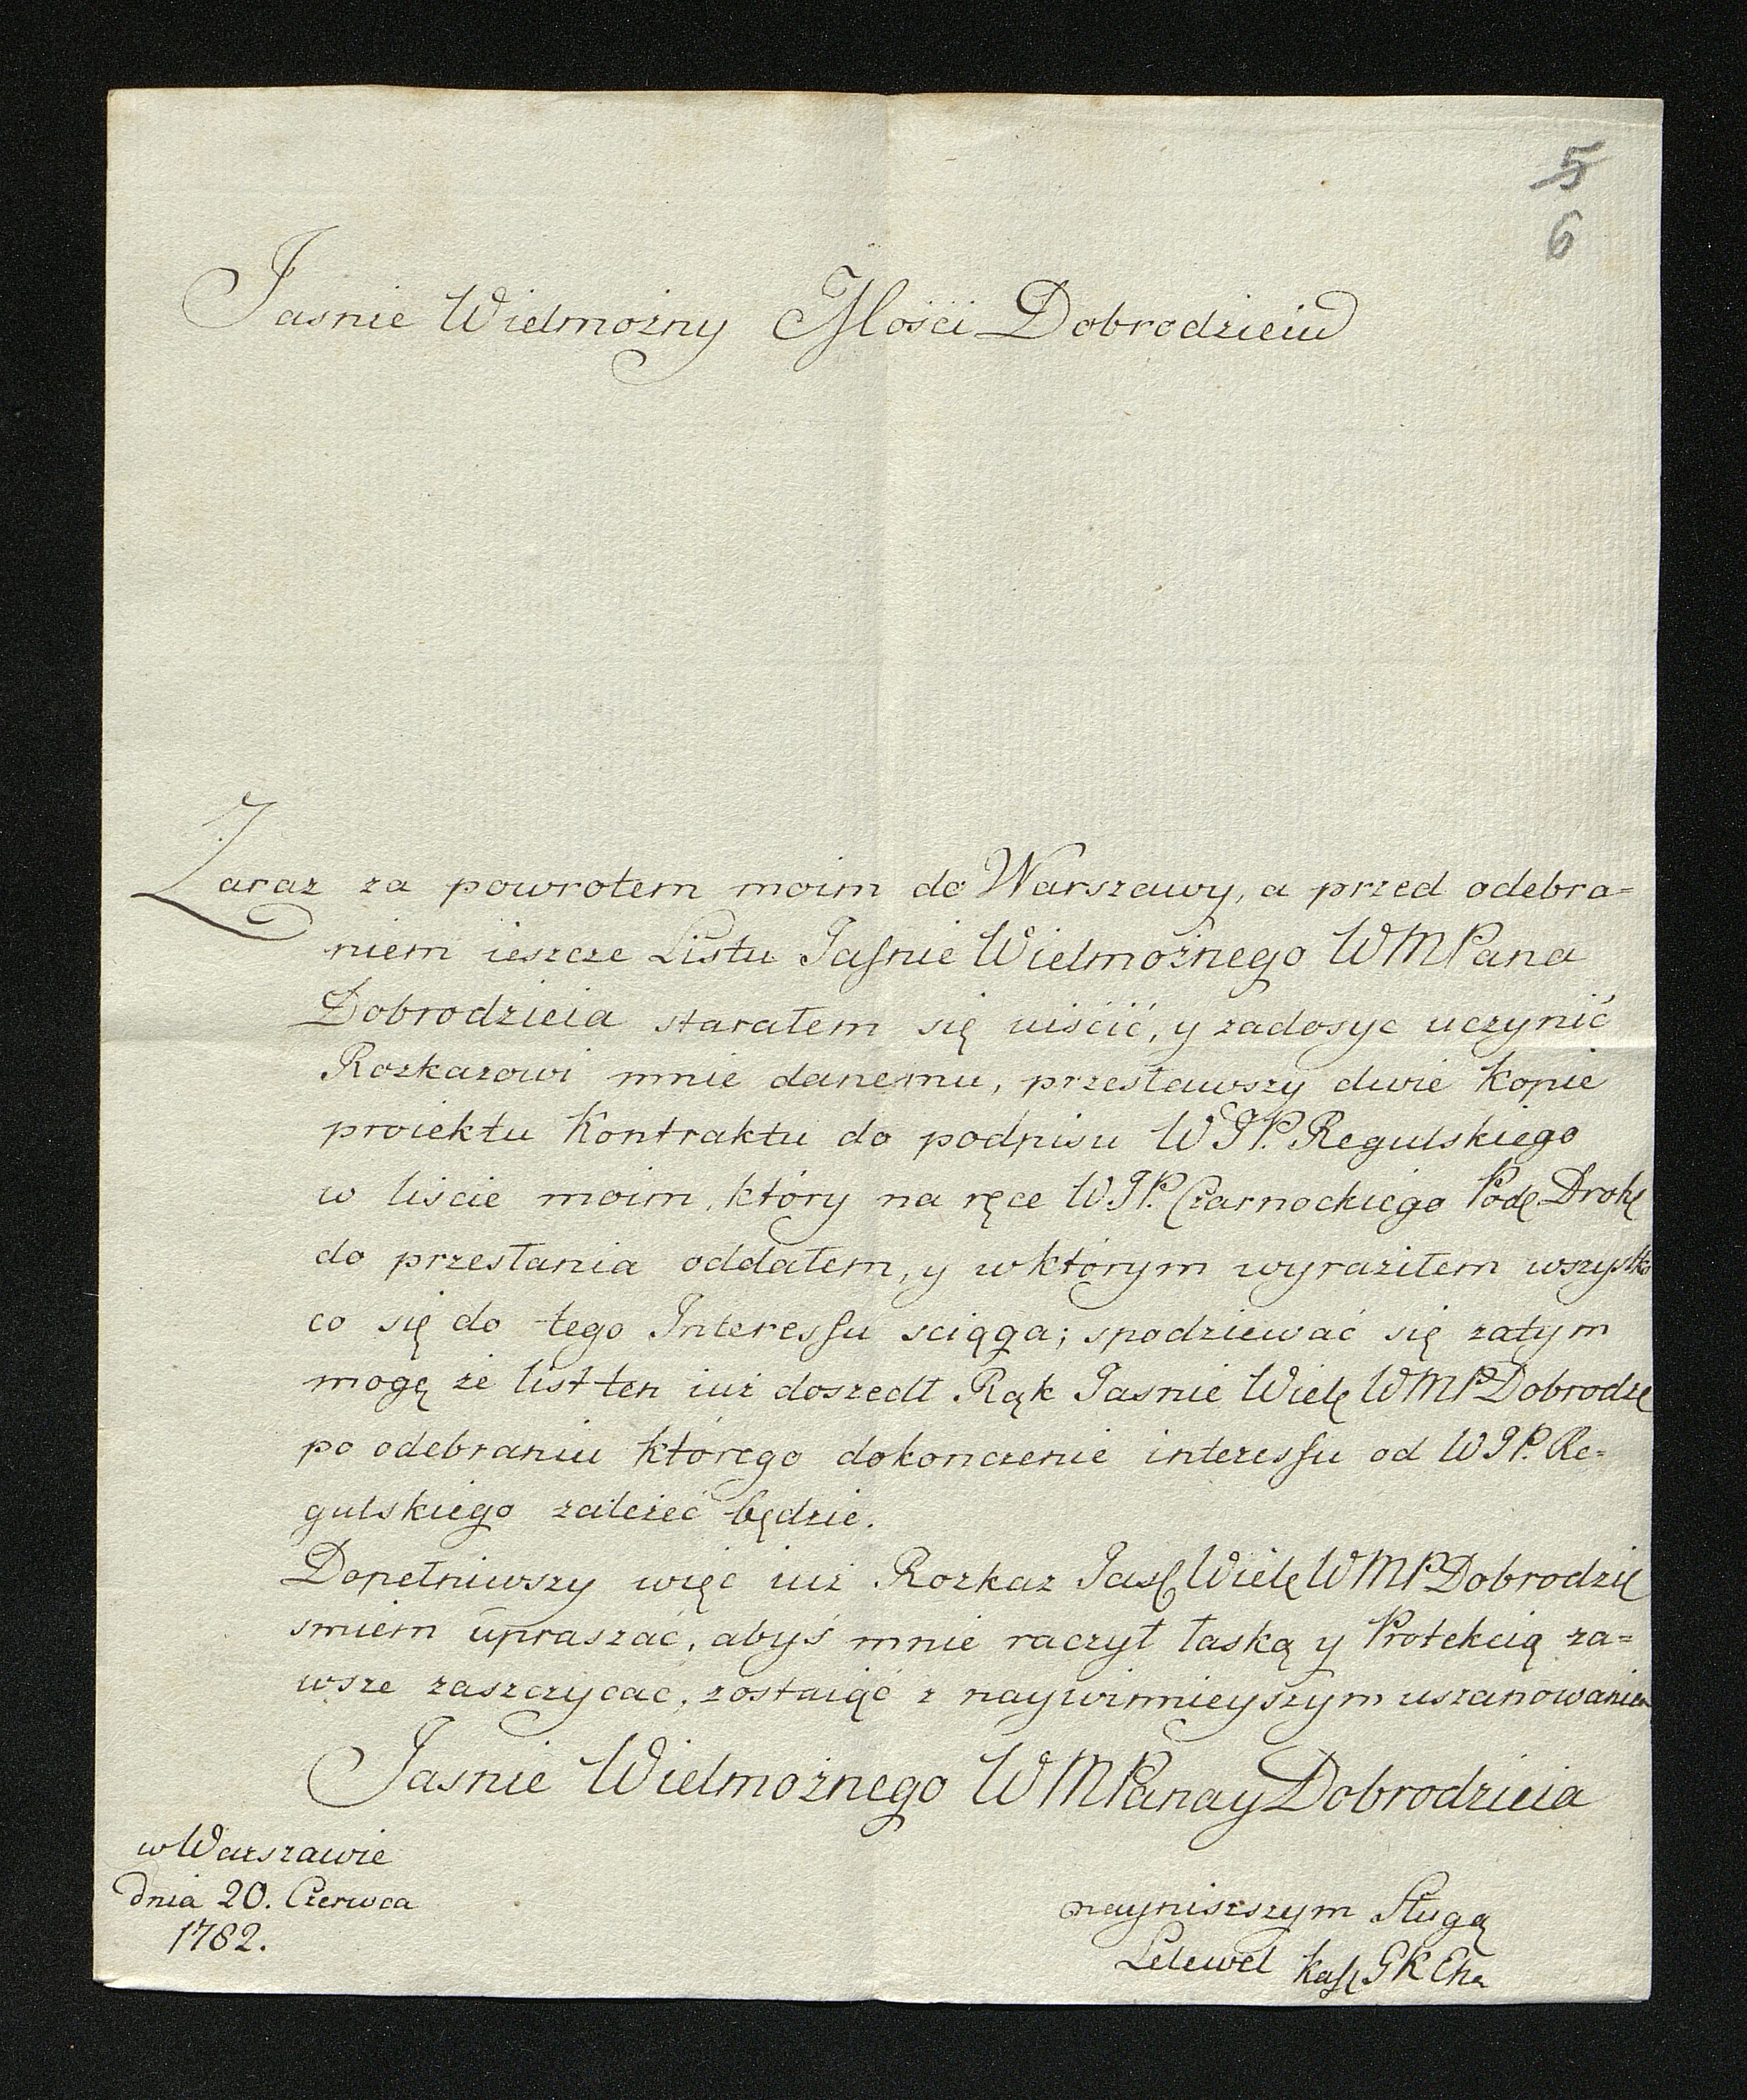 5
6
Jasnie Wielmozny JMości Dobrodzieiu
Zaraz za powrotem moim do Warszawy, a przed odebra=
niem ieszcze Listu Jaſnie Wielmożnego WMPana
Dobrodzieia starałem się uiścić, y zadosyc uczynić
Rozkazowi mnie danemu, przesławszy dwie Kopie
proiektu Kontraktu do podpisu WJP. Regulskiego
w liście moim, który na ręce WJP. Czarnockiego Podę Drohę
do przesłania oddałem, y w którym wyraziłem wszystko
co się do tego Interesſu sciąga; spodziewać się zatym
mogę że list ten iuż doszedł Rąk Jasnie Wielę WMP Dobrodzę
po odebraniu którego dokonczenie interesſu od WJP. Re=
gulskiego zależeć będzie.
Dopełniwszy więc iuż Rozkaz Jasę Wielę WMP Dobrodzię
smiem upraszać, abyś mnie raczył łaską y Protekcią za=
wsze zaszczycać, zostaiąc z naywinnieyszym uszanowaniem
Jasnie Wielmożnego WMPana y Dobrodzieia
w Warszawie
dnia 20. Czerwca
1782.
nayniższym Sługą
Lelewel Kaſę